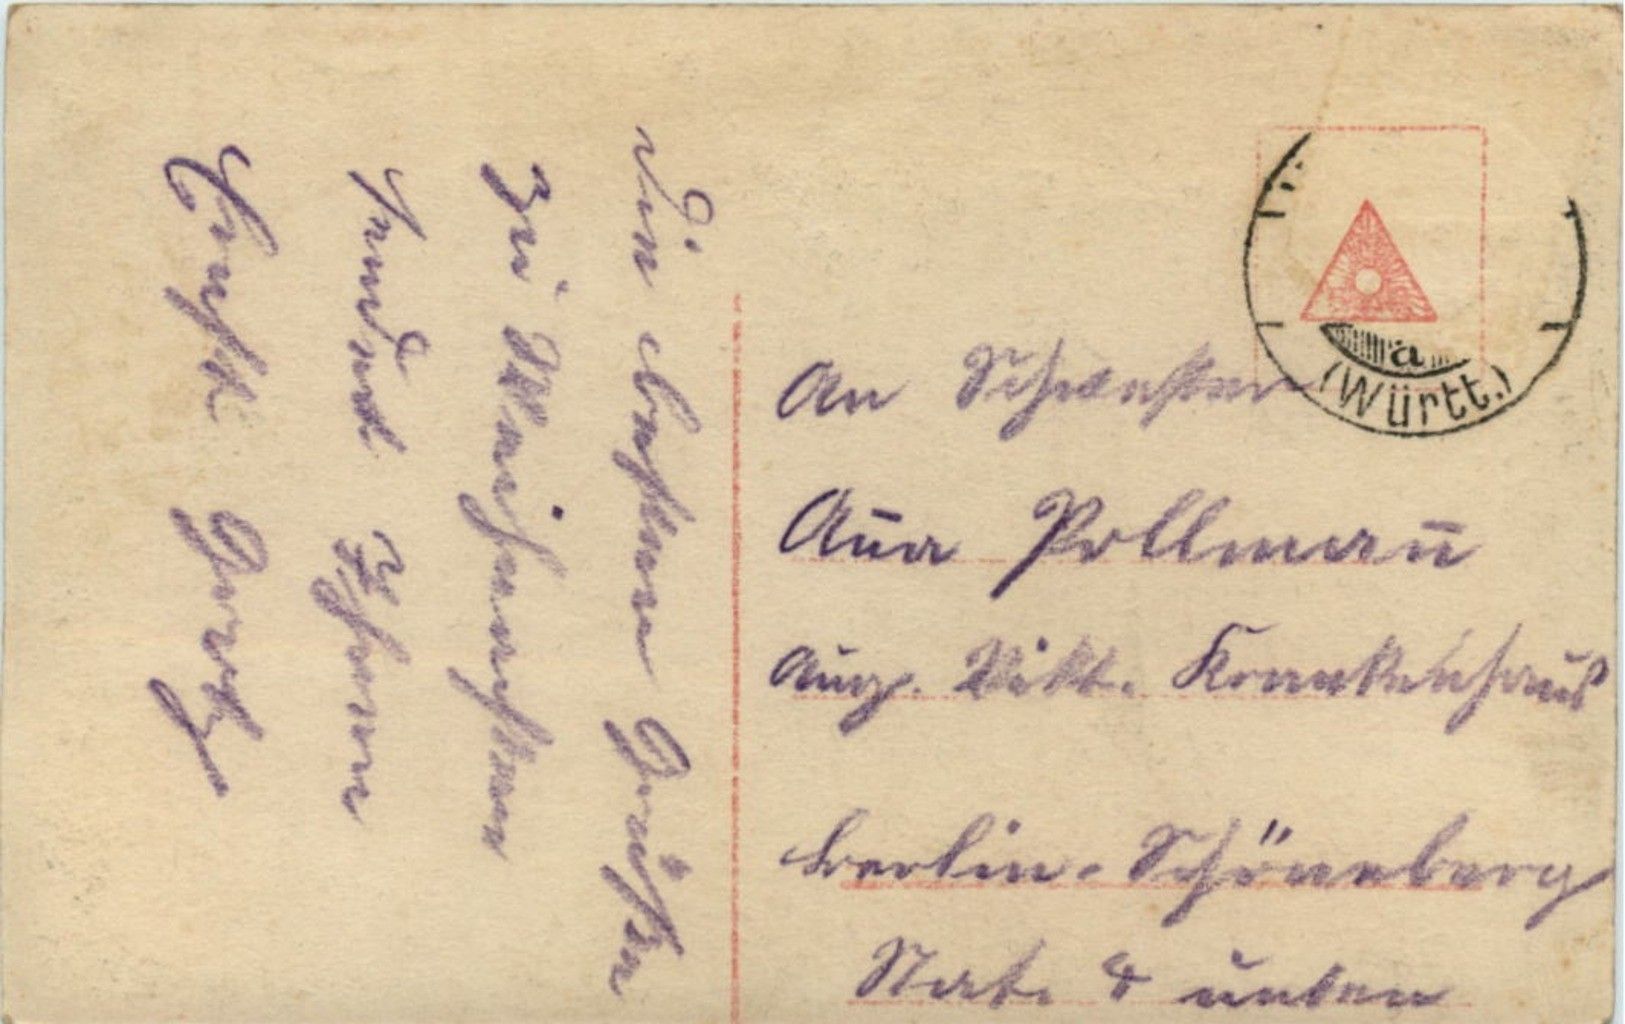 Die besten Grüßen
zu Weihnachten
sendet Ihnen
Ernst
a
(Württ.)
An Schwester
Anna Pollmann
Aug. Vikt. Krankenhaus
Berlin-Schöneberg
Stat. 8 unten